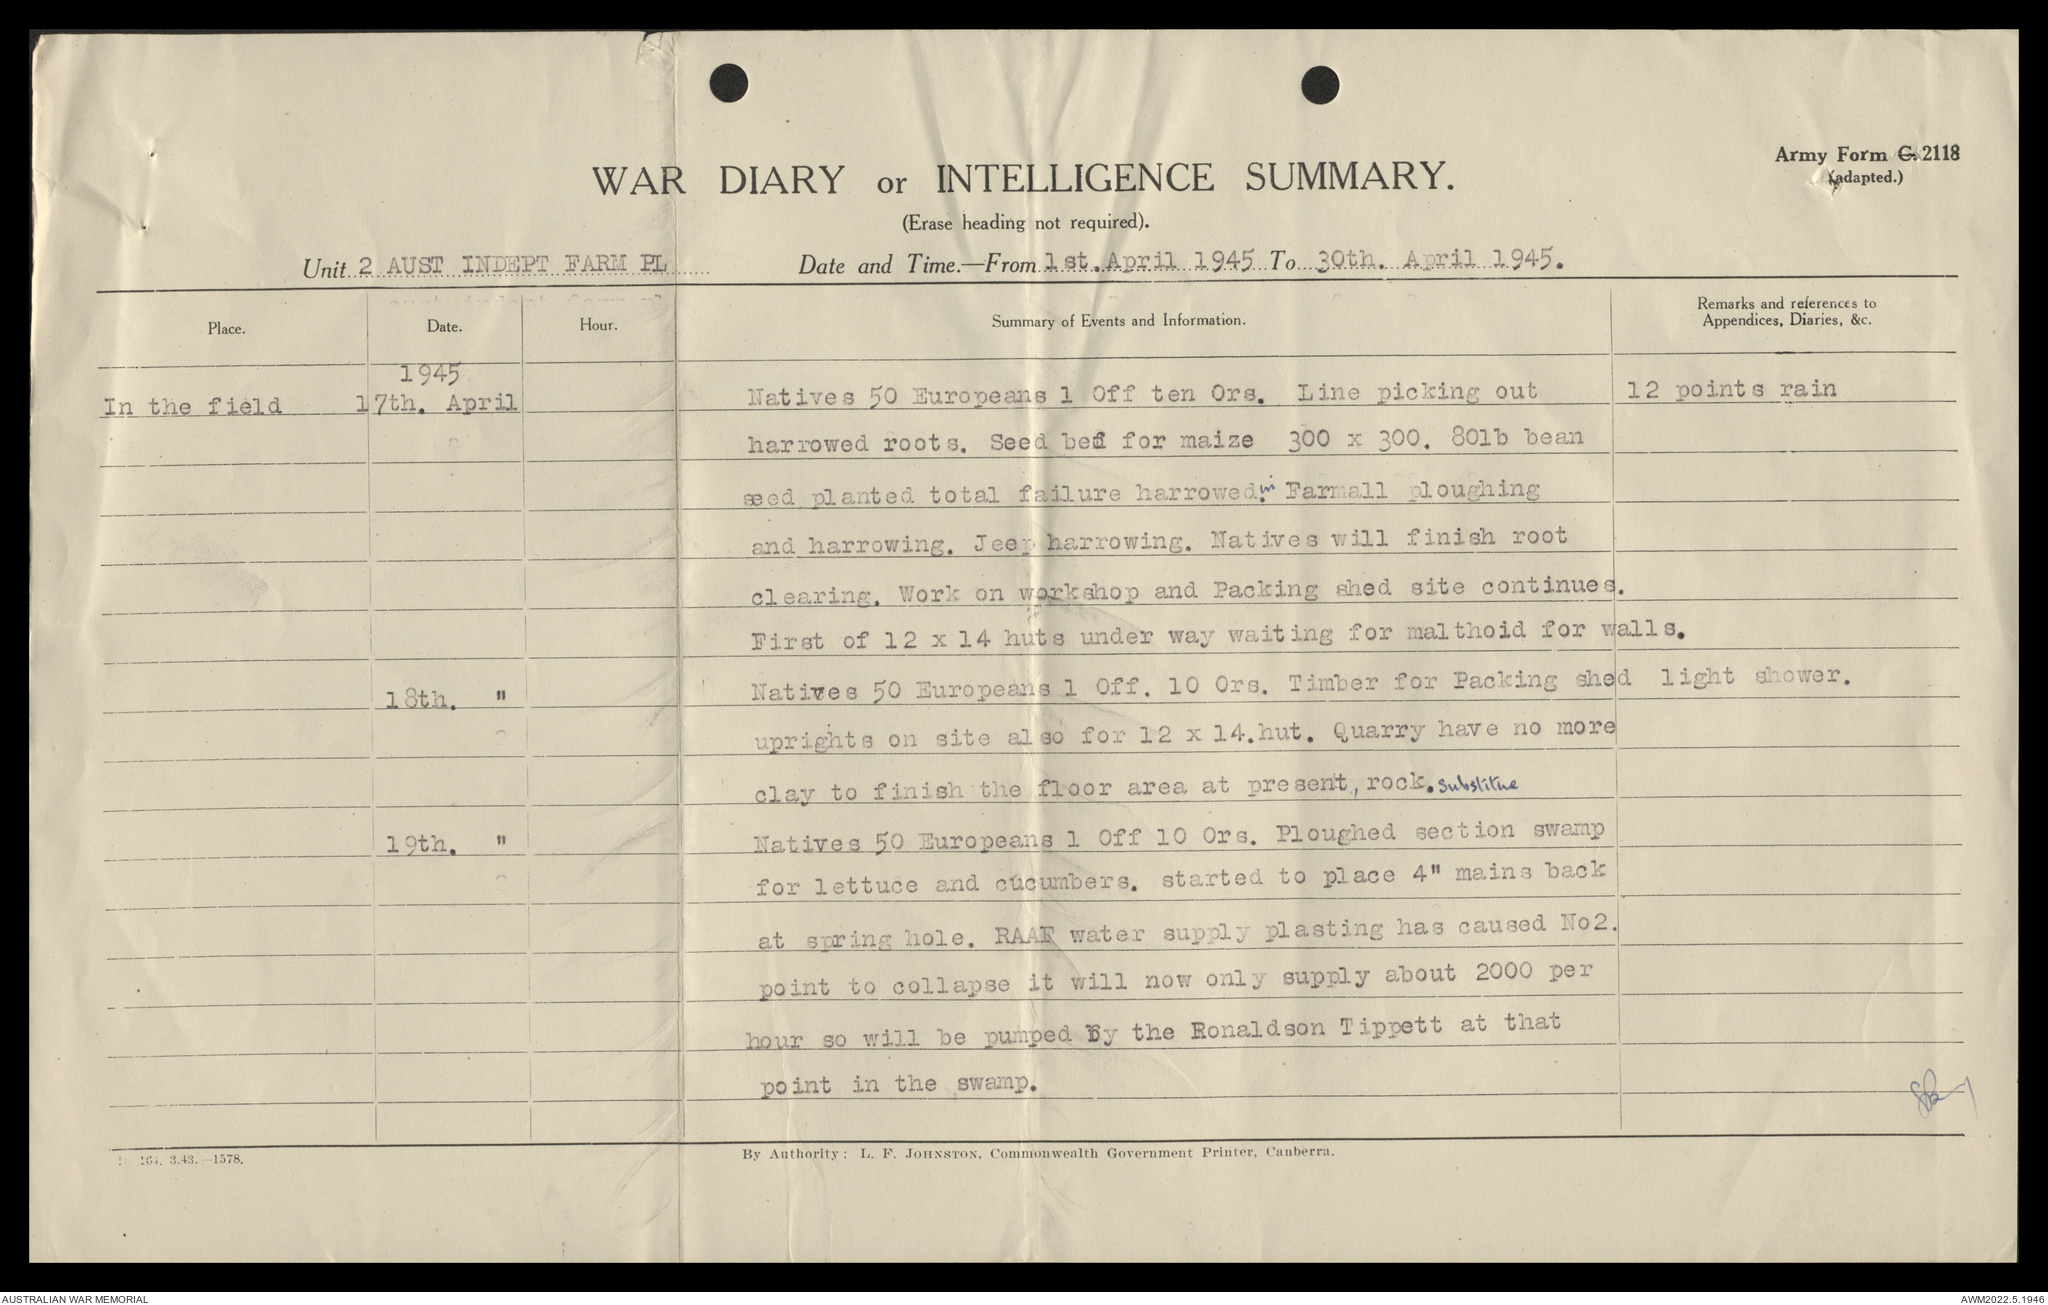 Army Form C. 2118
(adapted.)
WAR DIARY or INTELLIGENCE SUMMARY.
(Erase heading not required).
Unit 2 AUST INDEPT FARM PL Date and Time.—From 1st. April 1945 To 30th. April 1945.
Place. Date. Hour. Summary of Events and Information. Remarks and references to
Appendices, Diaries, &c.
1945
In the field 17th. April Natives 50 Europeans 1 Off ten Ors. Line picking out 12 points rain
harrowed roots. Seed bed for maize 300 x 300. 80lb bean
seed planted total failure harrowed in. Farmall ploughing
and harrowing. Jeep harrowing. Natives will finish root
clearing. Work on workshop and Packing shed site continues.
First of 12 x 14 huts under way waiting for malthoid for walls.
18th. " Natives 50 Europeans 1 Off. 10 Ors. Timber for Packing shed light shower.
uprights on site also for 12 x 14.hut. Quarry have no more
clay to finish the floor area at present, rock. substitue
19th. " Natives 50 Europeans 1 Off 10 Ors. Ploughed section swamp
for lettuce and cucumbers. started to place 4" mains back
at spring hole. RAAF water supply plasting has caused No2.
point to collapse it will now only supply about 2000 per
hour so will be pumped by the Ronaldson Tippett at that
point in the swamp.
164. 3.43.—1578. By Authority: L. F. JOHNSTON, Commonwealth Government Printer, Canberra.
AUSTRALIAN WAR MEMORIAL AWM2022.5.1946